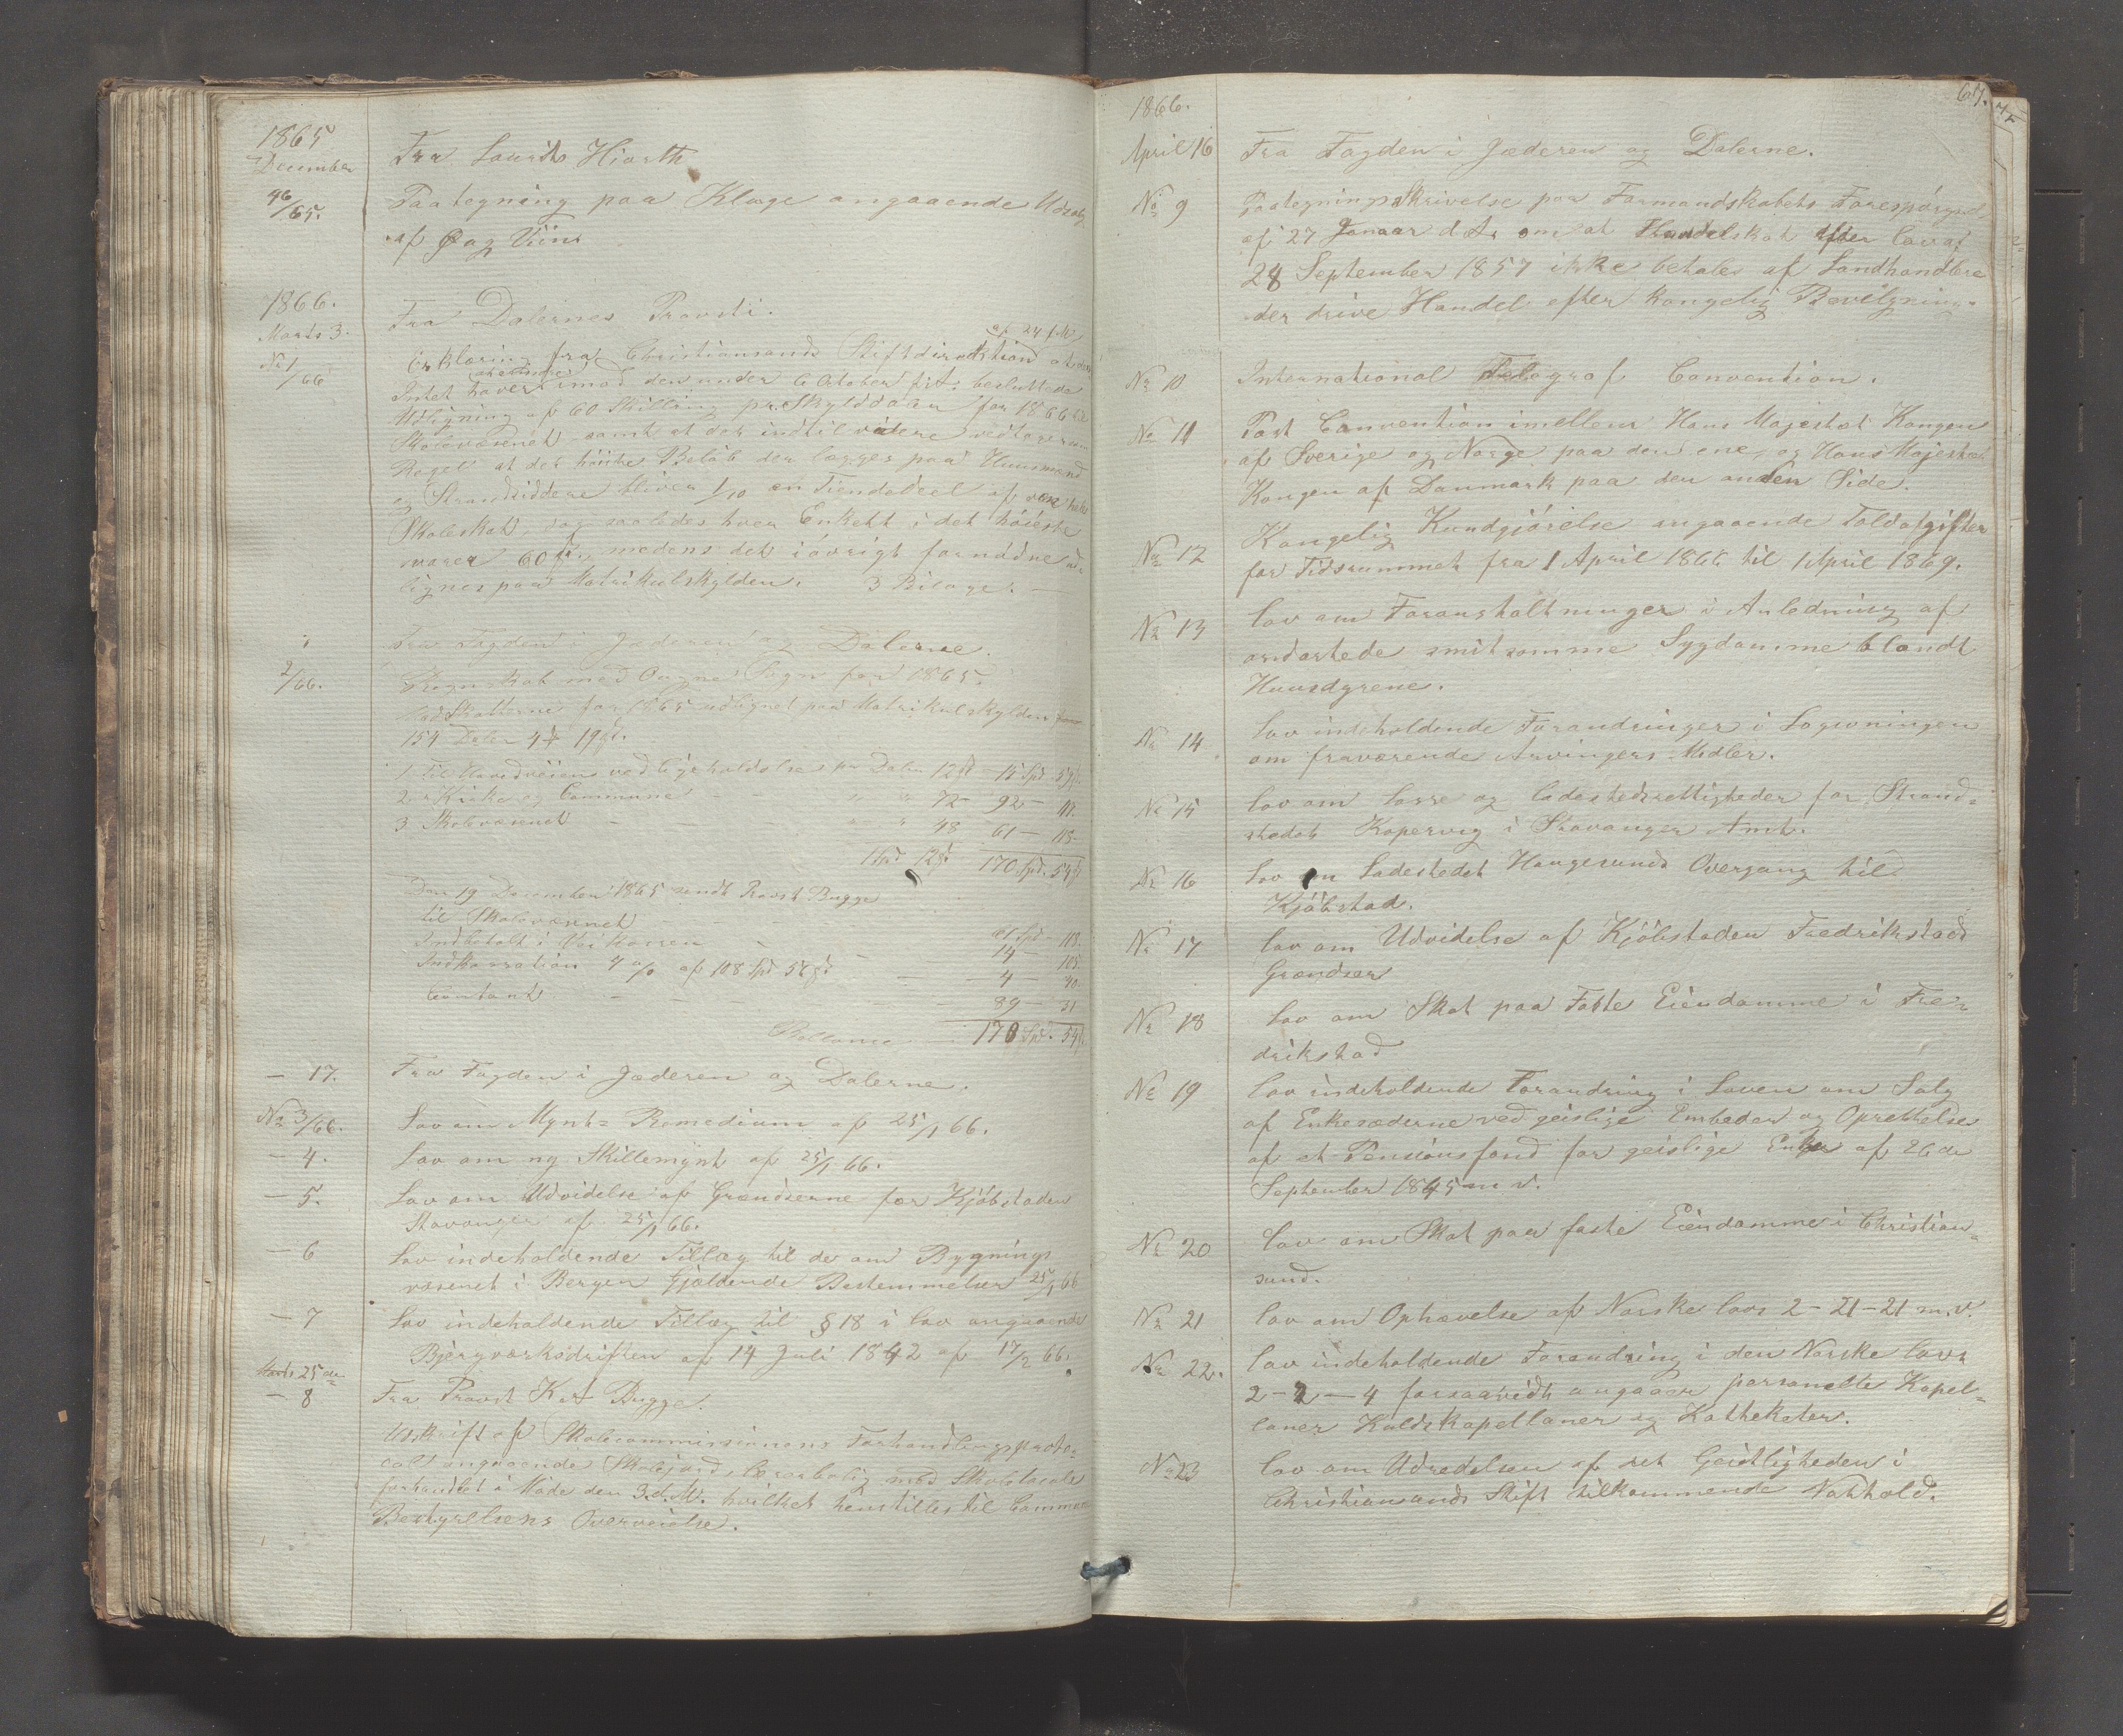 1865
December
Fra Laurits Hiorth
46/65.
Paategning paa Klage angaaende Udsalg
af Øl og Viin
1866.
Marts 3.
Fra Dalernes Provsti.
No 1/66
Erklæring fra Christiansands Stiftdirecktion af 24 f.M. at
Intet haves at erindre imod den under 6 October f.A. besluttede
Udligning af 60 Skilling pr. Skylddaler for 1866 til
Skolevæsenet samt at det indtil videre vedtages som
Regel at det höieste Belöb der lægges paa Huusmænd
og Strandsiddere bliver 1/10 en Tiendedeel af den hele
Skoleskat, og saaledes hver Enkelt i det höieste
svarer 60 ß, medens det iövrigt fornödne ud-
lignes paa Matrikulskylden. 3 Bilage. —
Fra Fogden i Jæderen og Dalerne.
2/66.
Regnskab med Ougne Sogn for 1865.
Skatterne for 1865 udlignet paa Matrikulskylden
154 Daler 4 ort 19 ß.
1. Til Hovedveiens vedligeholdelse pr Daler 12 ß - 15 Spd - 59 ß.
2. Kirke og Commune - - " " 72 - 92 - 117.
3. Skolevæsenet - - " " 48 61 - 118
1 Spd 12 ß 170 Spd. 54 ß
Den 19 December 1865 sendt Provst Bugge
til Skolevæsenet - - 61 Spd - 118.
Indbetalt i Veikassen - - 14 - 105.
Indkassation 4 % af 108 Spd 56 ß - - 4 - 40.
Contant - - - 89 - 31
Ballance 170 Spd. 54 ß.
— 17.
Fra Fogden i Jæderen og Dalerne.
No 3/66.
Lov om Mynt-Remedium af 25/1 66.
— 4.
Lov om ny Skillemynt af 25/1 66.
— 5.
Lov om Udvidelse af Grændserne for Kjöbstaden
Stavanger af 25/1 66.
— 6
Lov indeholdende Tillæg til de om Bygnings
væsenet i Bergen Gjældende Bestemmelser 25/1 66
— 7
Lov indeholdende Tillæg til § 18 i lov angaaende
Bjergværksdriften af 14 Juli 1842 af 17/2 66.
Marts 25 de
— 8
Fra Provst Bugge.
Udskrift af Skolecommissionens Forhandlingsproto-
col angaaende Skolejord, lærerbolig med Skolelocale
forhandlet i Möde den 3. d. M. hvilket henstilles til Commune
Bestyrelsens Overveielse.
67.
1866.
April 16
Fra Fogden i Jæderen og Dalerne.
No 9
Paategningsskrivelse paa Formandskabets Forespörgsel
af 27 Januar d. A. om at Handelskat efter lov af
28 September 1857 ikke betales af Landhandlere
der drive Handel efter kongelig Bevilgning.
No 10
International Telegraf Convention.
No 11
Post Convention imellem Hans Majestæt Kongen
af Sverige og Norge paa den ene, og Hans Majestæt
Kongen af Danmark paa den anden Side.
No 12
Kongelig Kundgjörelse angaaende Toldafgifter
for Tidsrummet fra 1 April 1866 til 1 April 1869.
No 13
Lov om Foranstaltninger i Anledning af
ondartede smitsomme Sygdomme blandt
Huusdyrene.
No 14
Lov indeholdende Forandringer i Lovgivningen
om fraværende Arvingers Midler.
No 15
Lov om losse og ladestedsrettigheder for Strand-
stedet Kopervig i Stavanger Amt.
No 16
Lov om Ladestedet Haugesunds Overgang til
Kjöbstad.
No 17
Lov om Udvidelse af Kjöbstaden Fredrikstads
Grændser
No 18
Lov om Skat paa Faste Eiendomme i Fre-
drikstad
No 19
Lov indeholdende Forandring i Loven om Salg
af Enkesæderne ved geislige Embeder og Oprettelse
af et Pensionsfond for geislige Enker af 26 de
September 1845 m v.
No 20
Lov om Skat paa faste Eiendomme i Christian-
sund.
No 21
Lov om Ophævelse af Norske lovs 2-21-21 m.v.
No 22.
Lov indeholdende Forandring i den Norske lovs
2-2-4 forsaavidt angaaer personelle Kapel-
laner Kaldskapellaner og Kathekater.
No 23
Lov om Udredelsen af det Geistligheden i
Christiansands Stift tilkommende Nathold.